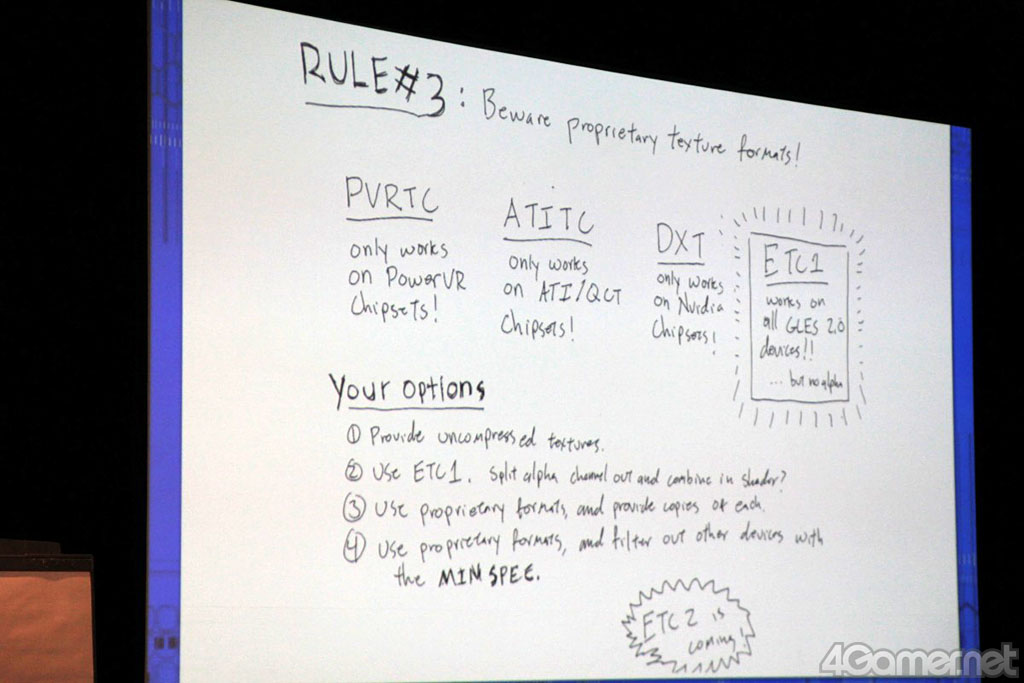 RULE #3: Beware proprietary texture formats!
PVRTC
only works
on PowerVR
Chipsets!
ATITC
only works
on ATI/QCT
Chipsets!
DXT
only works
on Nvidia
Chipsets!
ETC1
works on
all GLES 2.0
devices!!
... but no alpha
Your options
① Provide uncompressed textures.
② Use ETC1. Split alpha channel out and combine in shader?
③ Use proprietary formats, and provide copies of each.
④ Use proprietary formats, and filter out other devices with
the MIN SPEC.
ETC2 is
coming!
4Gamer.net